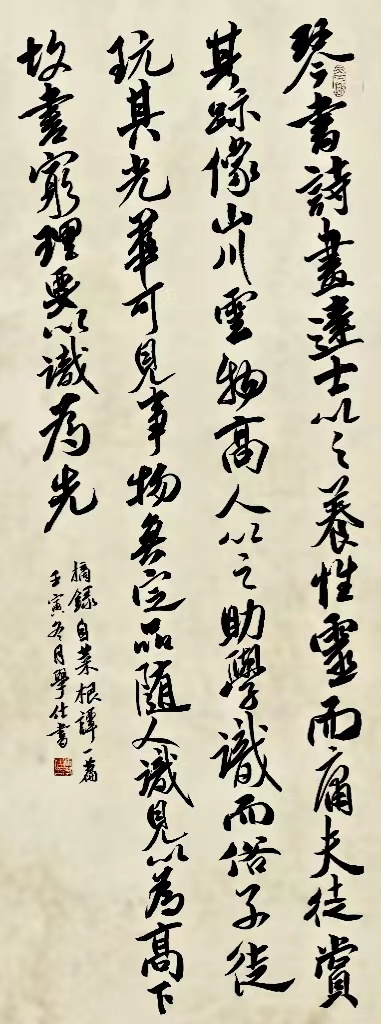 琴書詩畫達士以之養性靈而庸夫徒賞
其跡像山川雲物高人以之助學識而俗子徒
玩其光華可見事物無定品隨人識見以為高下
故書窮理要以識為先
摘錄自菜根譚一篇
壬寅冬月學仕書